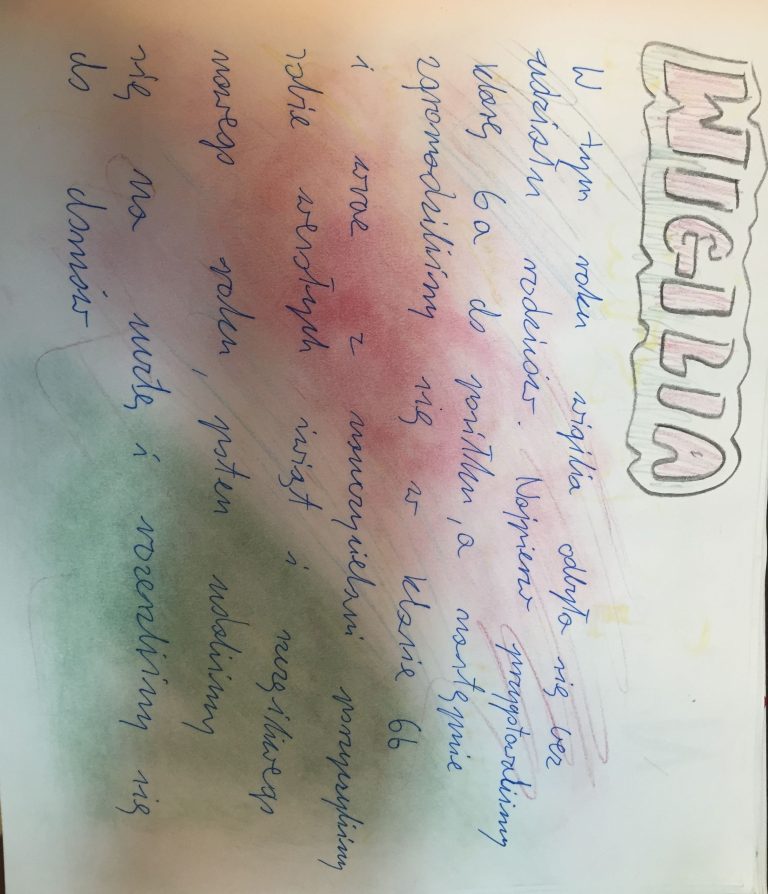 WIGILIA
W tym roku wigilia odbyła się bez
udziału rodziców. Najpierw przygotowaliśmy
klasę 6a do posiłku, a następnie
zgromadziliśmy się w klasie 6b
i wraz z nauczycielami
sobie wesołych świąt i szczęśliwego
nowego roku, potem udaliśmy
się na mszę i rozeszliśmy się
do domów